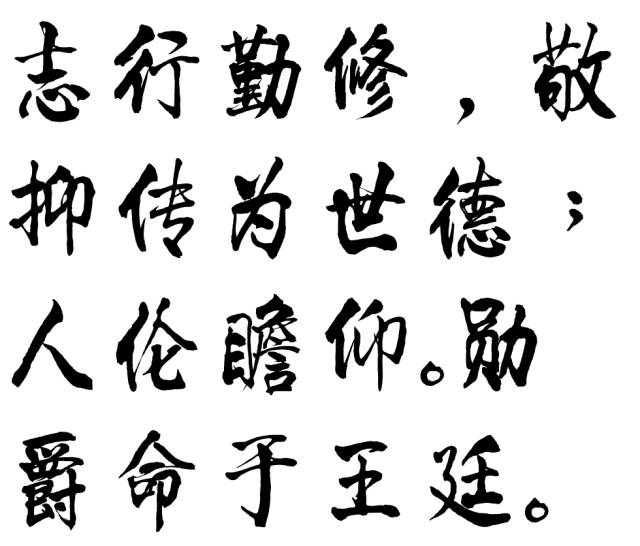 志行勤修，敬
抑传为世德；
人伦瞻仰。勋
爵命于王廷。